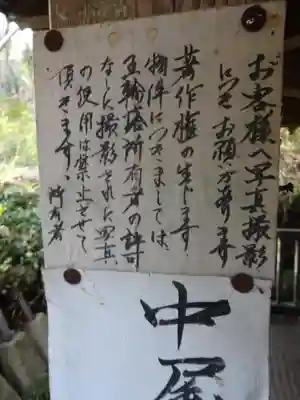 お客様へ写真撮影
につきお願ひが有ります
著作権の生じます
物件につきましては、
五輪塔所有者の許可
なしに撮影された写真
の使用は禁止させて
頂きます、 所有者
中尾